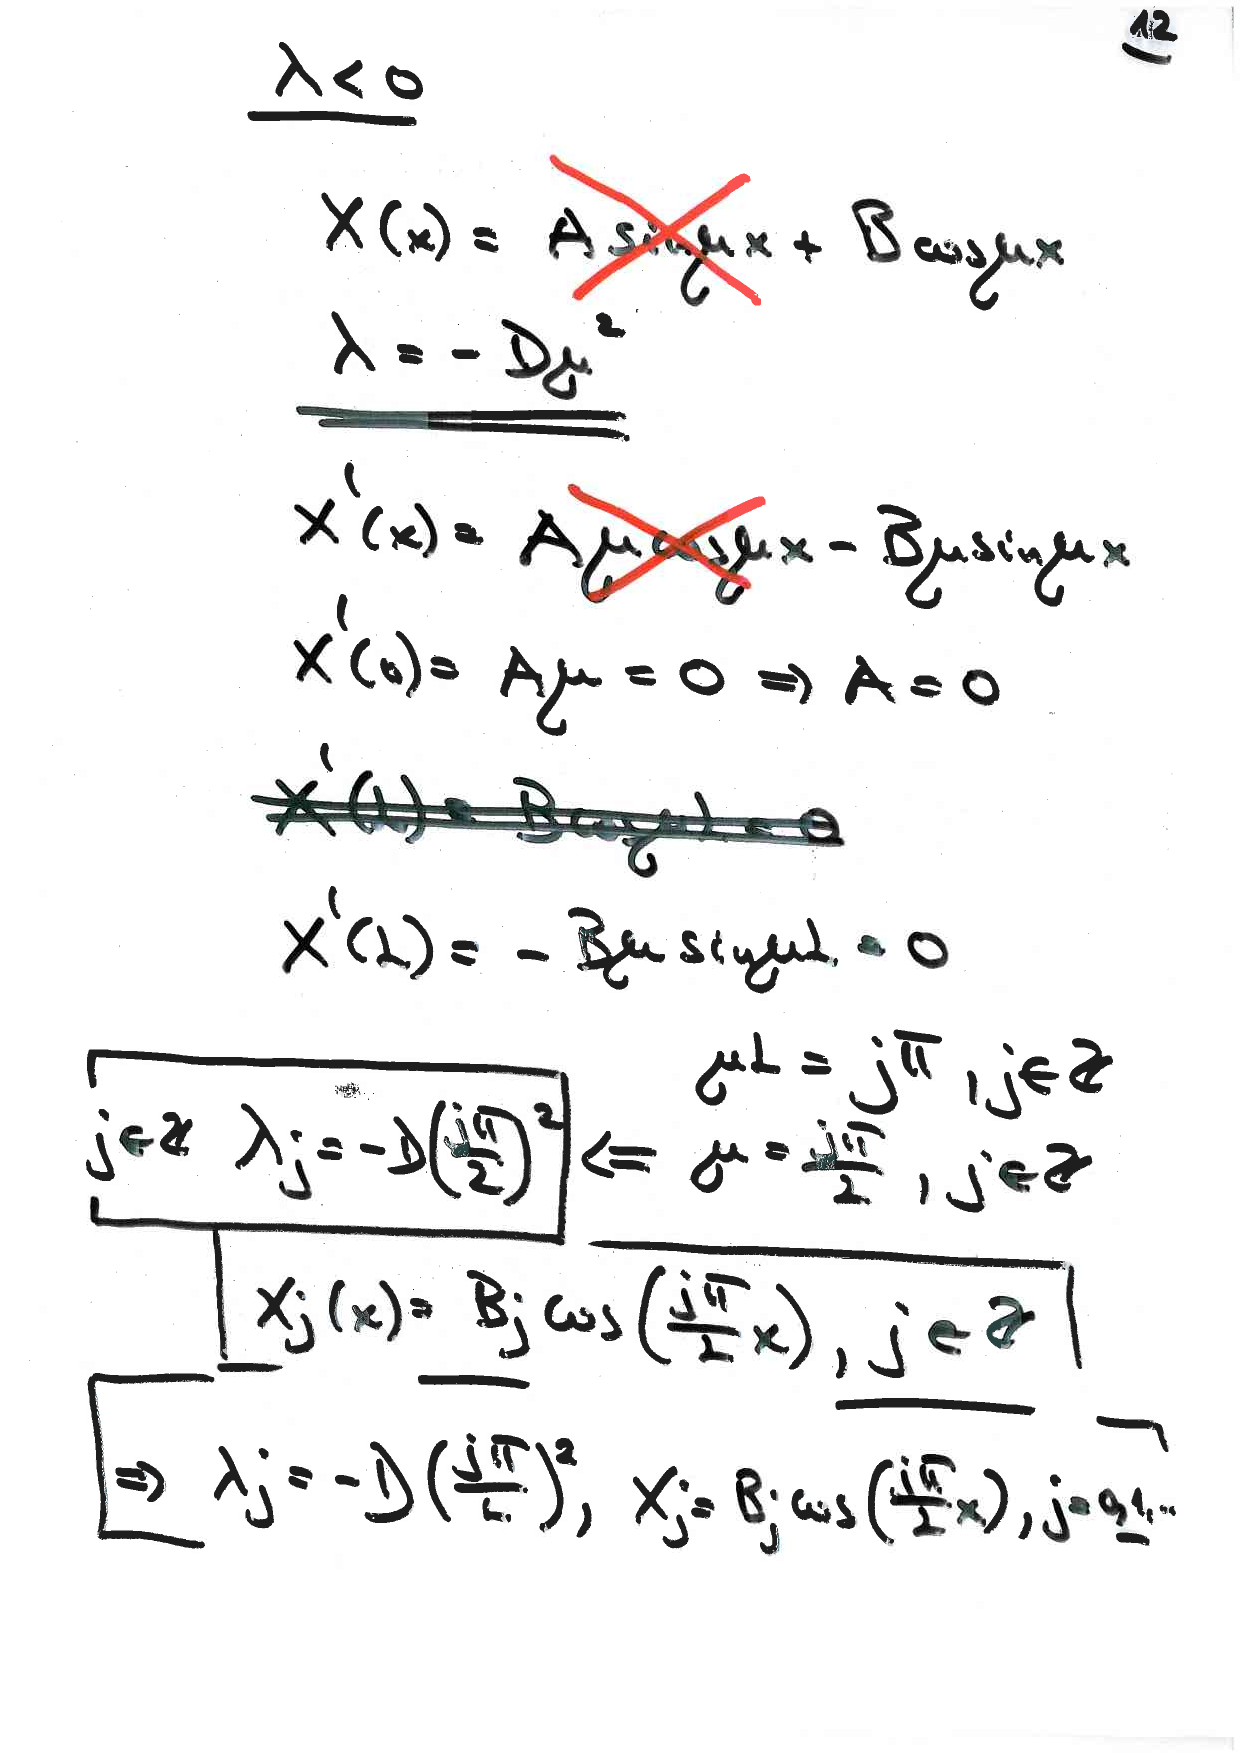 12
λ < 0
X(x) = A sin μx + B cos μx
λ = - Dμ²
X'(x) = Aμ cos μx - Bμ sin μx
X'(0) = Aμ = 0 ⇒ A = 0
X'(L) = B cos μL = 0
X'(L) = - Bμ sin μL = 0
μL = jπ, j ∈ ℤ
j ∈ ℤ λj = -D(jπ/L)² ⇐ μ = jπ/L, j ∈ ℤ
Xj(x) = Bj cos(jπ/L x), j ∈ ℤ
⇒ λj = -D(jπ/L)², Xj = Bj cos(jπ/L x), j = 0,1,...